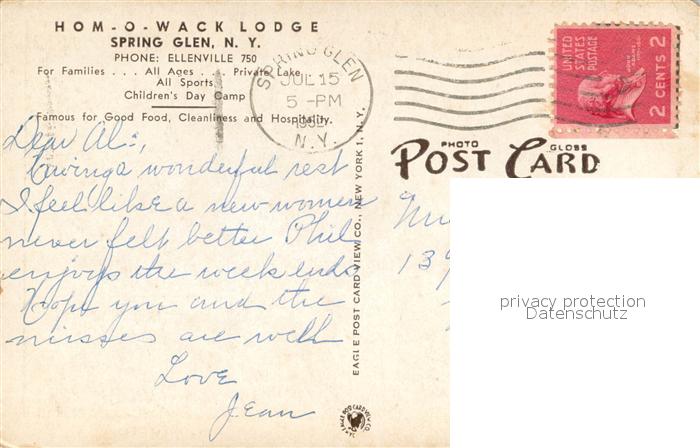 HOM-O-WACK LODGE
SPRING GLEN, N. Y.
PHONE: ELLENVILLE 750
For Families . . . All Ages . . . Private Lake
All Sports
Children's Day Camp
Famous for Good Food, Cleanliness and Hospitality.
SPRING GLEN
JUL 15
5 - PM
N.Y.
UNITED STATES POSTAGE
JOHN ADAMS
2 CENTS 2
PHOTO GLOSS
POST CARD
Dear Al:,
Having a wonderful rest
I feel like a new women
never felt better Phil
enjoys the week ends
Hope you and the
misses are well
Love
Jean
EAGLE POST CARD VIEW CO., NEW YORK 1, N. Y.
13
privacy protection
Datenschutz